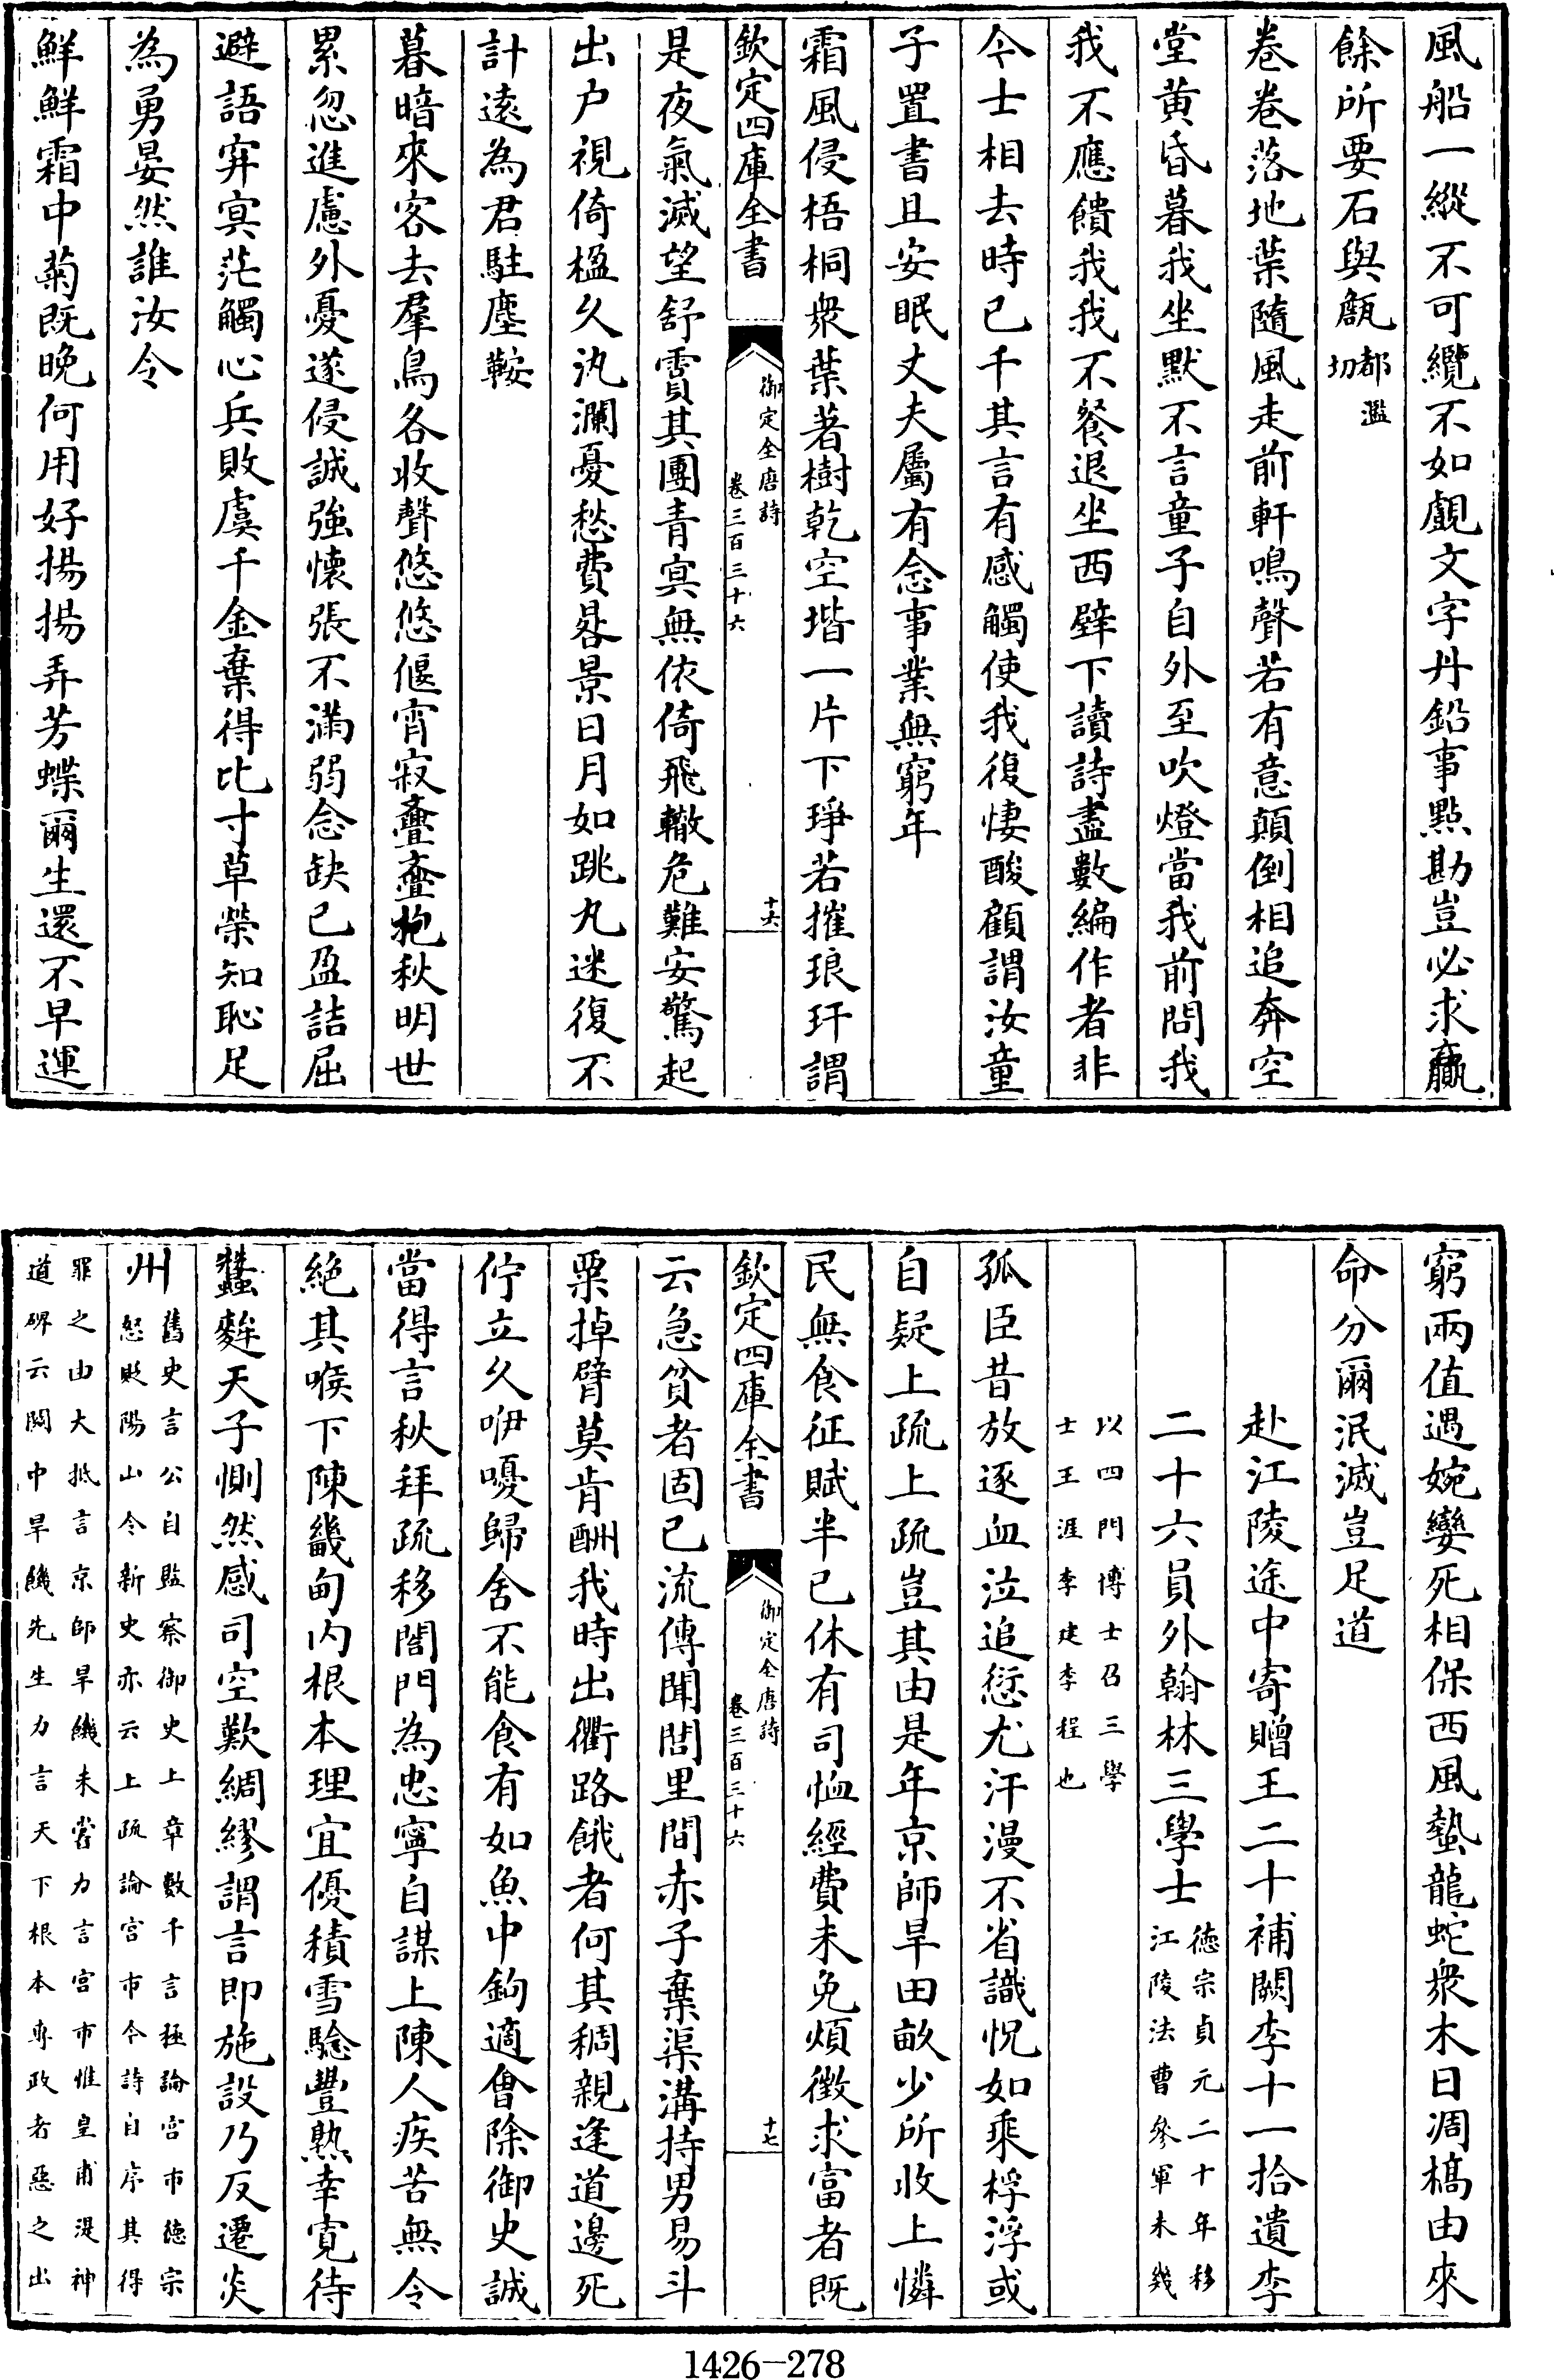 風船一縱不可纜不如覷文字丹鉛事點勘豈必求贏
餘所要石與甔都濫切
卷卷落地葉隨風走前軒鳴聲若有意顛倒相追奔空
堂黄昏暮我坐默不言童子自外至吹燈當我前問我
我不應饋我我不餐退坐西壁下讀詩盡數編作者非
今士相去時已千其言有感觸使我復悽酸顧謂汝童
子置書且安眠丈夫屬有念事業無窮年
霜風侵梧桐衆葉著樹乾空堦一片下琤若摧琅玕謂
欽定四庫全書
御定全唐詩
卷三百三十六
十六
是夜氣滅望舒霣其團青冥無依倚飛轍危難安驚起
出户視倚楹久汍瀾憂愁費晷景日月如跳丸迷復不
計遠為君駐塵鞍
暮暗來客去羣鳥各收聲悠悠偃宵寂亹亹抱秋明世
累忽進慮外憂遂侵誠強懐張不滿弱念缺已盈詰屈
避語穽冥茫觸心兵敗虞千金棄得比寸草榮知恥足
為勇晏然誰汝令
鮮鮮霜中菊既晚何用好揚揚弄芳蝶爾生還不早運
窮兩值遇婉孌死相保西風蟄龍蛇衆木日凋槁由來
命分爾泯滅豈足道
赴江陵途中寄贈王二十補闕李十一拾遺李
二十六員外翰林三學士德宗貞元二十年移江陵法曹參軍未幾
以四門博士召三學士王涯李建李程也
孤臣昔放逐血泣追愆尤汗漫不省識怳如乘桴浮或
自疑上疏上疏豈其由是年京師旱田畝少所收上憐
民無食征賦半已休有司恤經費未免煩徵求富者既
欽定四庫全書
御定全唐詩
卷三百三十六
十七
云急貧者固已流傳聞閭里間赤子棄渠溝持男易斗
粟掉臂莫肯酬我時出衢路餓者何其稠親逢道邊死
佇立久咿嚘歸舍不能食有如魚中鉤適會除御史誠
當得言秋拜疏移閤門為忠寧自謀上陳人疾苦無令
絶其喉下陳畿甸内根本理宜優積雪驗豐熟幸寛待
蠶麰天子惻然感司空歎綢繆謂言即施設乃反遷炎
州舊史言公自監察御史上章數千言極論宫市德宗怒貶陽山令新史亦云上疏論宫市今詩自序其得
罪之由大抵言京師旱饑未嘗力言宫市惟皇甫湜神道碑云關中旱饑先生力言天下根本專政者惡之出
1426-278